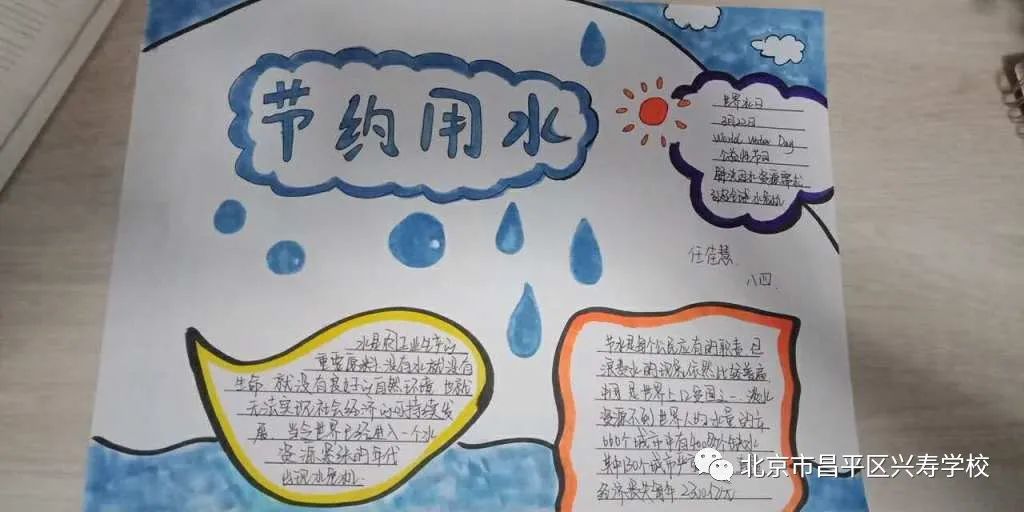 节约用水
世界水日
3月22日
World Water Day
个
节日
解决
水资源
水危机
任佳慧
八四
水是
工业生产
重要原料 没有水就没有
生命 就没有良好的自然环境 也就
无法实现社会经济的可持续发
展 当今世界已经进入一个水
资源紧张的年代
出现水危机
节水是每个公民应有的职责 但
浪费水的现象依然比较
是世界上
国之一
资源不到世界人均水量的
660个城市中有400多个缺水
其中130个城市
经济损失
北京市昌平区兴寿学校